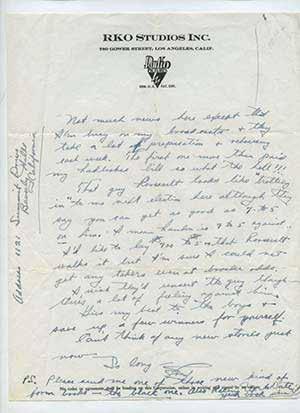 RKO STUDIOS INC.
780 GOWER STREET, LOS ANGELES, CALIF.
Radio
PICTURES
REG. U.S. PAT. OFF.
Not much news here except that
I'm busy on my broadcasts & they
take a lot of preparation & rehearsing
each week. The first one more than paid
my hospital bill so what the hell!!!
That guy Roosevelt looks like "trotting
in" to me next election here although they
say you can get as good as 7 to 5
on him.
I'd like to lay 700 to 5 that Roosevelt
walks it but I'm sure I could not
get any takers even at broader odds.
I wish they'd unseat the guy though
there's a lot of feeling against him
Give my best to the boys &
save up a few winners for yourself.
Can't think of any new stories just
now —
So long
P.S. Please send me one of those new kind of
form books — the black one. Also
Address 1121 Summit Drive
Beverly Hills
California